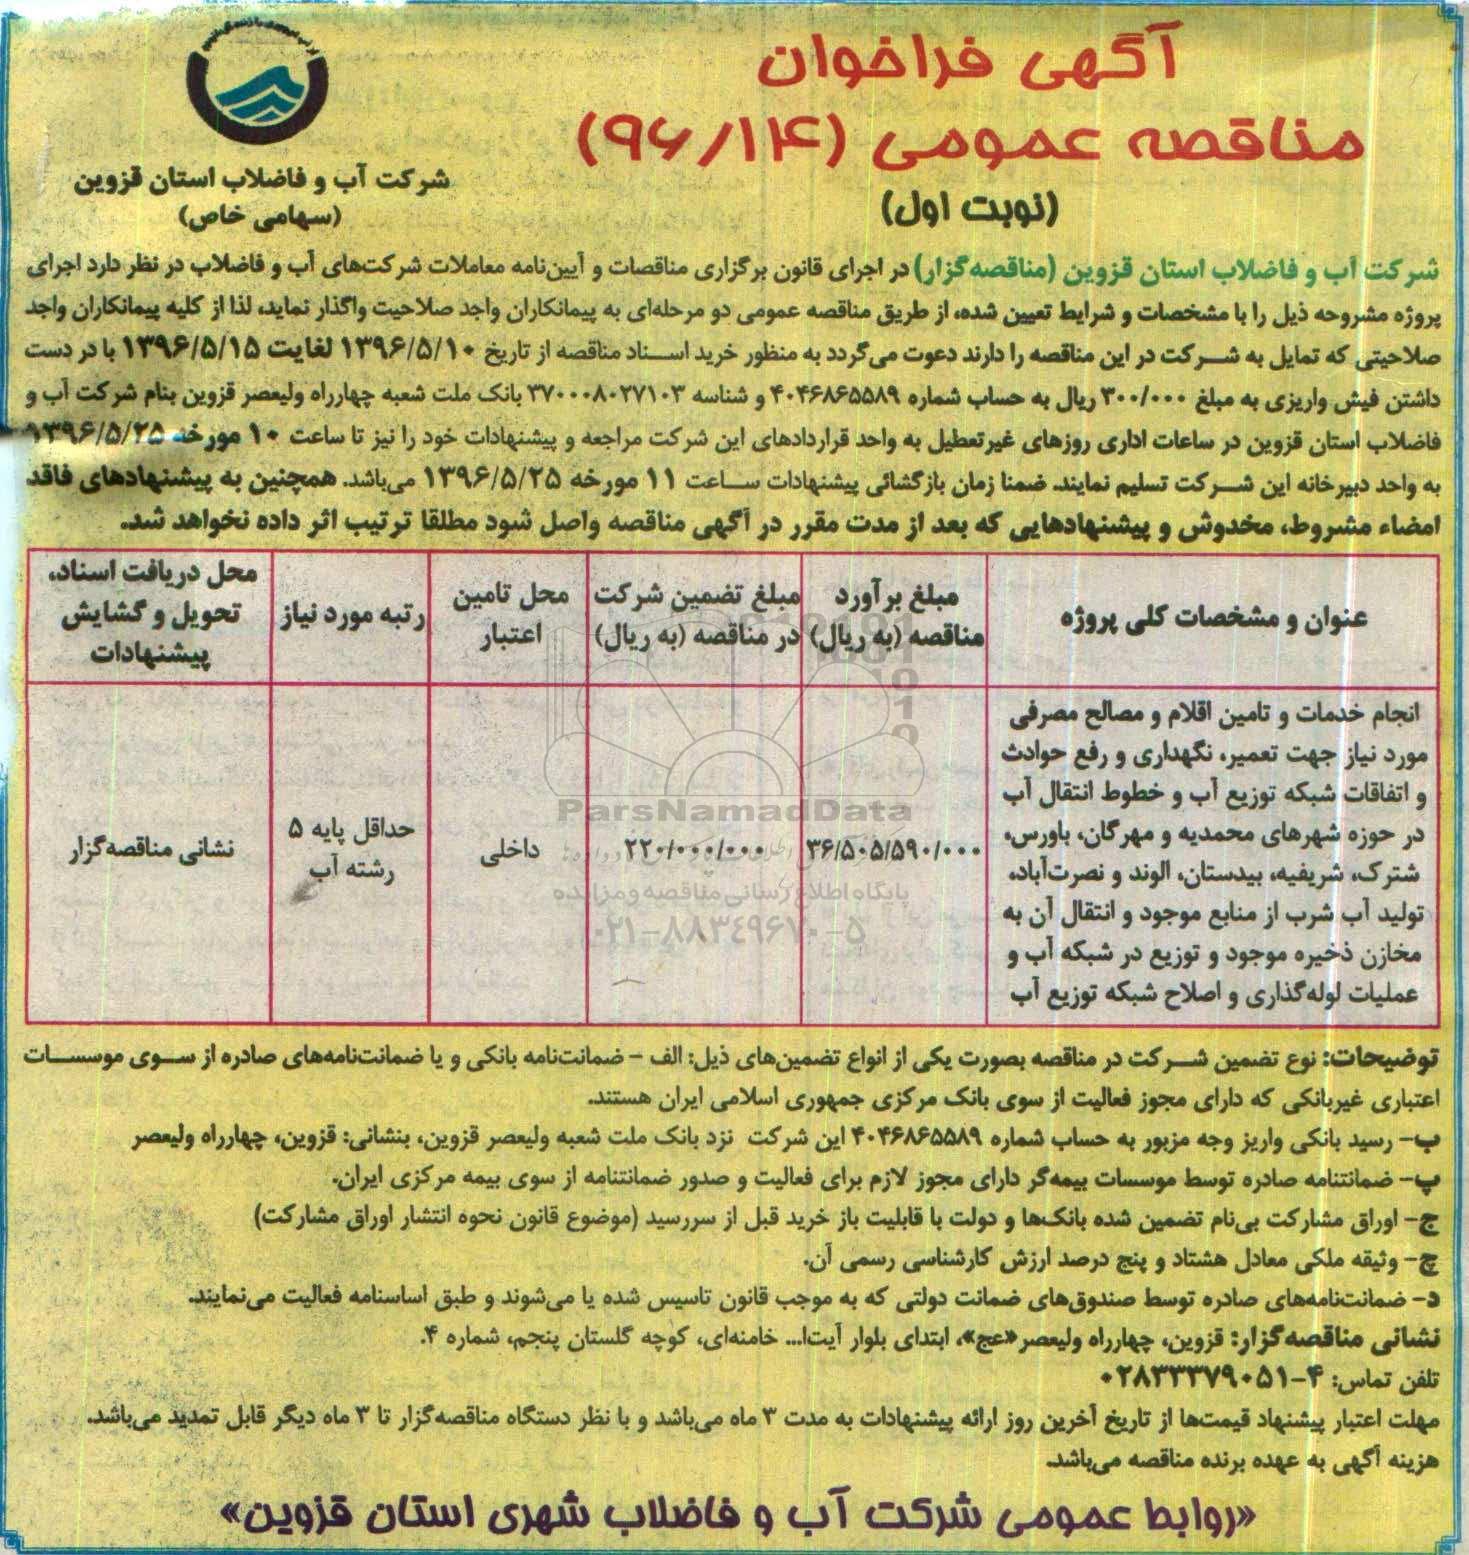 آگهی فراخوان
مناقصه عمومی (۹۶/۱۴)
(نوبت اول)
شرکت آب و فاضلاب استان قزوین
(سهامی خاص)
شرکت آب و فاضلاب استان قزوین (مناقصه‌گزار) در اجرای قانون برگزاری مناقصات و آیین‌نامه معاملات شرکت‌های آب و فاضلاب در نظر دارد اجرای
پروژه مشروحه ذیل را با مشخصات و شرایط تعیین شده، از طریق مناقصه عمومی دو مرحله‌ای به پیمانکاران واجد صلاحیت واگذار نماید، لذا از کلیه پیمانکاران واجد
صلاحیتی که تمایل به شرکت در این مناقصه را دارند دعوت می‌گردد به منظور خرید اسناد مناقصه از تاریخ ۱۳۹۶/۵/۱۰ لغایت ۱۳۹۶/۵/۱۵ با در دست
داشتن فیش واریزی به مبلغ ۳۰۰/۰۰۰ ریال به حساب شماره ۴۰۴۶۸۶۵۵۸۹ و شناسه ۳۷۰۰۰۸۰۲۷۱۰۳ بانک ملت شعبه چهارراه ولیعصر قزوین بنام شرکت آب و
فاضلاب استان قزوین در ساعات اداری روزهای غیرتعطیل به واحد قراردادهای این شرکت مراجعه و پیشنهادات خود را نیز تا ساعت ۱۰ مورخه ۱۳۹۶/۵/۲۵
به واحد دبیرخانه این شرکت تسلیم نمایند. ضمنا زمان بازگشائی پیشنهادات ساعت ۱۱ مورخه ۱۳۹۶/۵/۲۵ می‌باشد. همچنین به پیشنهادهای فاقد
امضاء مشروط، مخدوش و پیشنهادهایی که بعد از مدت مقرر در آگهی مناقصه واصل شود مطلقا ترتیب اثر داده نخواهد شد.
عنوان و مشخصات کلی پروژه
مبلغ برآورد
مناقصه (به ریال)
مبلغ تضمین شرکت
در مناقصه (به ریال)
محل تامین
اعتبار
رتبه مورد نیاز
محل دریافت اسناد،
تحویل و گشایش
پیشنهادات
انجام خدمات و تامین اقلام و مصالح مصرفی
مورد نیاز جهت تعمیر، نگهداری و رفع حوادث
و اتفاقات شبکه توزیع آب و خطوط انتقال آب
در حوزه شهرهای محمدیه و مهرگان، باورس،
شترک، شریفیه، بیدستان، الوند و نصرت‌آباد،
تولید آب شرب از منابع موجود و انتقال آن به
مخازن ذخیره موجود و توزیع در شبکه آب و
عملیات لوله‌گذاری و اصلاح شبکه توزیع آب
۳۶/۵۰۵/۵۹۰/۰۰۰
۲۲۰/۰۰۰/۰۰۰
داخلی
حداقل پایه ۵
رشته آب
نشانی مناقصه‌گزار
ParsNamadData
پایگاه اطلاع رسانی مناقصه و مزایده
۰۲۱-۸۸۳۴۹۶۷۰-۵
توضیحات: نوع تضمین شرکت در مناقصه بصورت یکی از انواع تضمین‌های ذیل: الف - ضمانت‌نامه بانکی و یا ضمانت‌نامه‌های صادره از سوی موسسات
اعتباری غیربانکی که دارای مجوز فعالیت از سوی بانک مرکزی جمهوری اسلامی ایران هستند.
ب- رسید بانکی واریز وجه مزبور به حساب شماره ۴۰۴۶۸۶۵۵۸۹ این شرکت نزد بانک ملت شعبه ولیعصر قزوین، بنشانی: قزوین، چهارراه ولیعصر
پ- ضمانتنامه صادره توسط موسسات بیمه‌گر دارای مجوز لازم برای فعالیت و صدور ضمانتنامه از سوی بیمه مرکزی ایران.
ج- اوراق مشارکت بی‌نام تضمین شده بانک‌ها و دولت با قابلیت باز خرید قبل از سررسید (موضوع قانون نحوه انتشار اوراق مشارکت)
چ- وثیقه ملکی معادل هشتاد و پنج درصد ارزش کارشناسی رسمی آن.
د- ضمانت‌نامه‌های صادره توسط صندوق‌های ضمانت دولتی که به موجب قانون تاسیس شده یا می‌شوند و طبق اساسنامه فعالیت می‌نمایند.
نشانی مناقصه‌گزار: قزوین، چهارراه ولیعصر«عج»، ابتدای بلوار آیت‌ا... خامنه‌ای، کوچه گلستان پنجم، شماره ۴.
تلفن تماس: ۴-۰۲۸۳۳۳۷۹۰۵۱
مهلت اعتبار پیشنهاد قیمت‌ها از تاریخ آخرین روز ارائه پیشنهادات به مدت ۳ ماه می‌باشد و با نظر دستگاه مناقصه‌گزار تا ۳ ماه دیگر قابل تمدید می‌باشد.
هزینه آگهی به عهده برنده مناقصه می‌باشد.
«روابط عمومی شرکت آب و فاضلاب شهری استان قزوین»